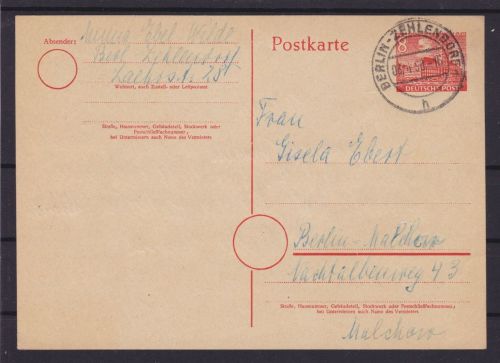 Absender:
Ebel
Berl. Zehlendorf
Wohnort, auch Zustell- oder Leitpostamt
Straße, Hausnummer, Gebäudeteil, Stockwerk oder
Postschließfachnummer;
bei Untermietern auch Name des Vermieters
Postkarte
8
DEUTSCHE POST
BERLIN-ZEHLENDORF
h
Frau
Gisela Ebert
Berlin-Malchow
43
Straße, Hausnummer, Gebäudeteil, Stockwerk oder Postschließfachnummer;
bei Untermietern auch Name des Vermieters
Malchow